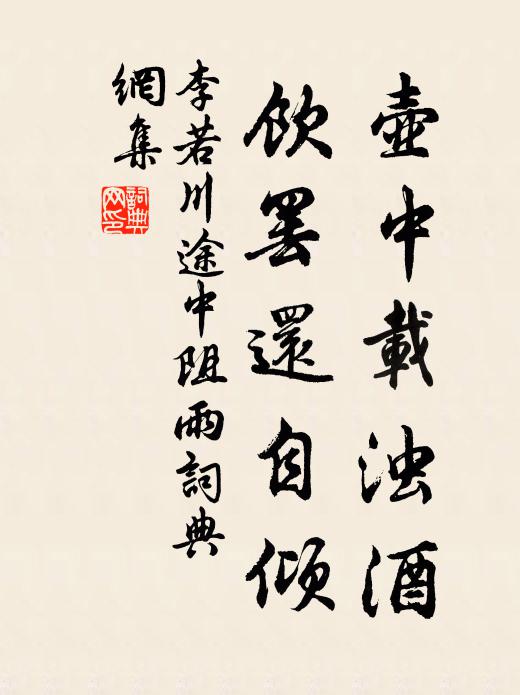 壺中載浊酒
飲罢還自倾
李若川途中阻雨詞典
網集
詞典
网印